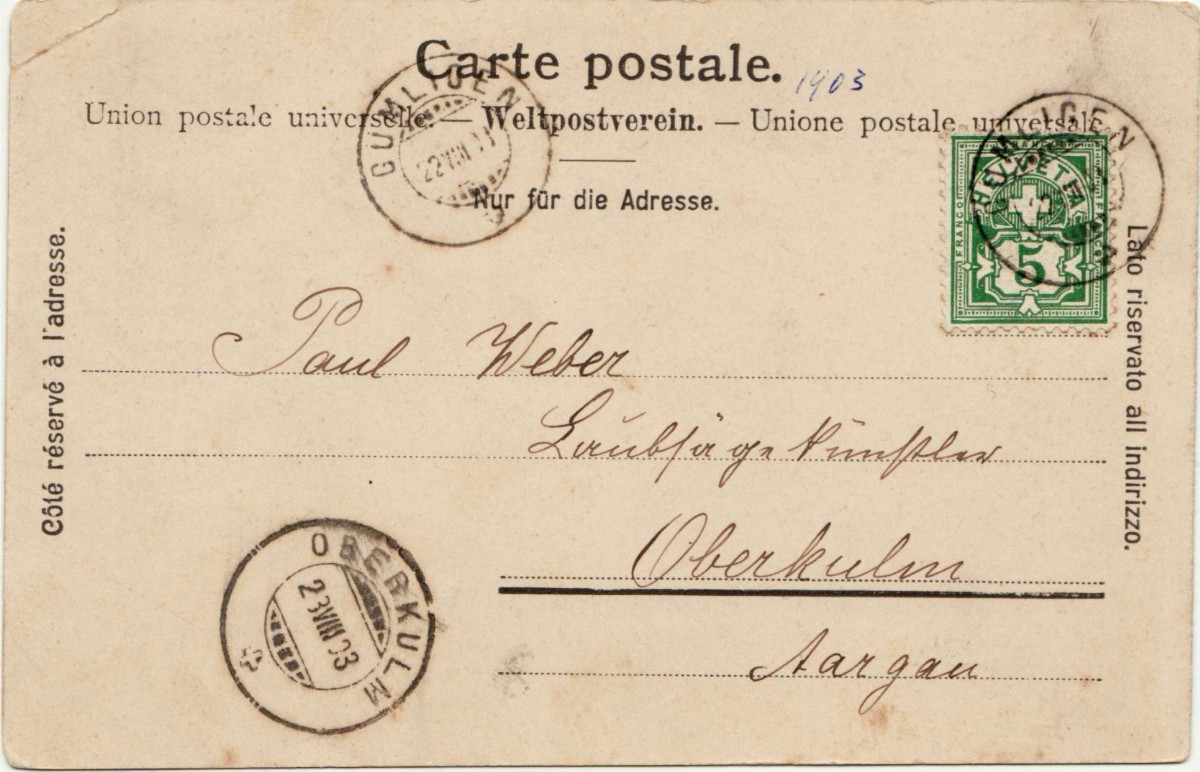 Carte postale.
1903
Union postale universelle. — Weltpostverein. — Unione postale universale
Nur für die Adresse.
GÜMLIGEN
22 VIII 03
GÜMLIGEN
HELVETIA
FRANCO
FRANCO
5
Côté réservé à l'adresse.
Lato riservato all indirizzo.
Paul Weber
Laubsäge künstler
Oberkulm
Aargau
OBERKULM
23 VIII 03